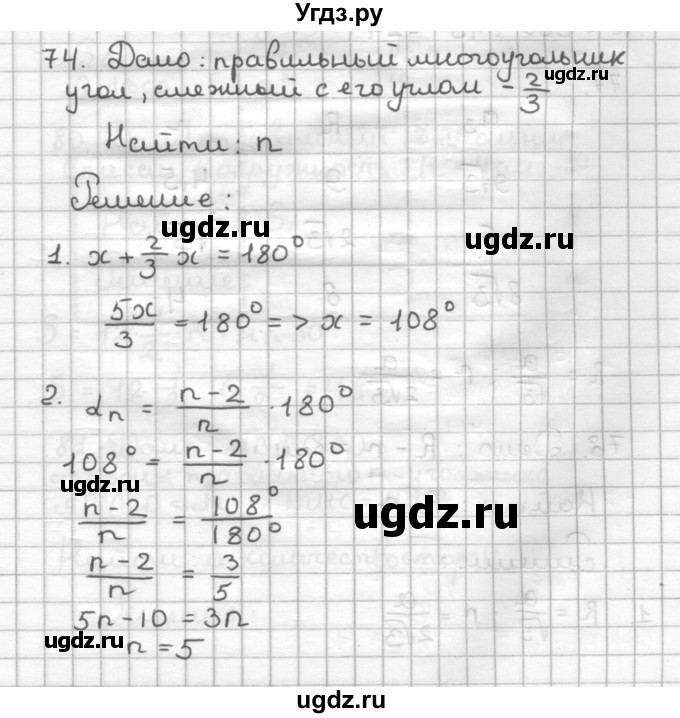 Угдз.ру
74. Дано: правильный многоугольник
угол, смежный с его углом - 2/3
ugdz.ru
Найти: n
Решение:
ugdz.ru
ugdz.ru
1. x + 2/3 x = 180°
5x/3 = 180° => x = 108°
2. αn = n-2/n · 180°
108° = n-2/n · 180°
ugdz.ru
n-2/n = 108°/180°
ugdz.ru
n-2/n = 3/5
5n-10 = 3n
ugdz.ru
n = 5
ugdz.ru